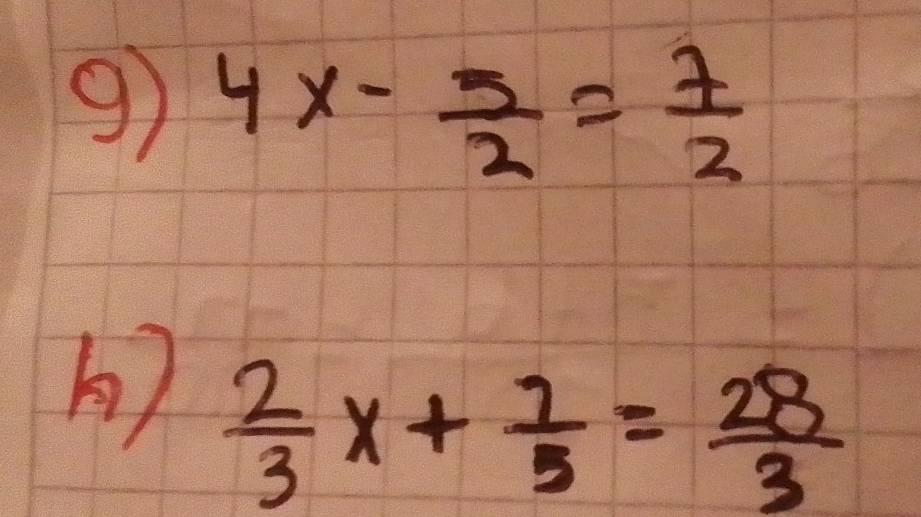 g) 4x - 5/2 = 7/2
h) 2/3 x + 1/5 = 28/3